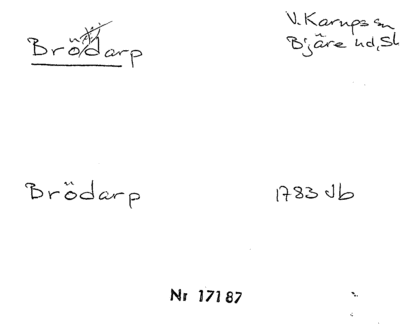 Brödarp
V. Karups sn
Bjäre hd, Sk
Brödarp
1783 Jb
Nr 17187